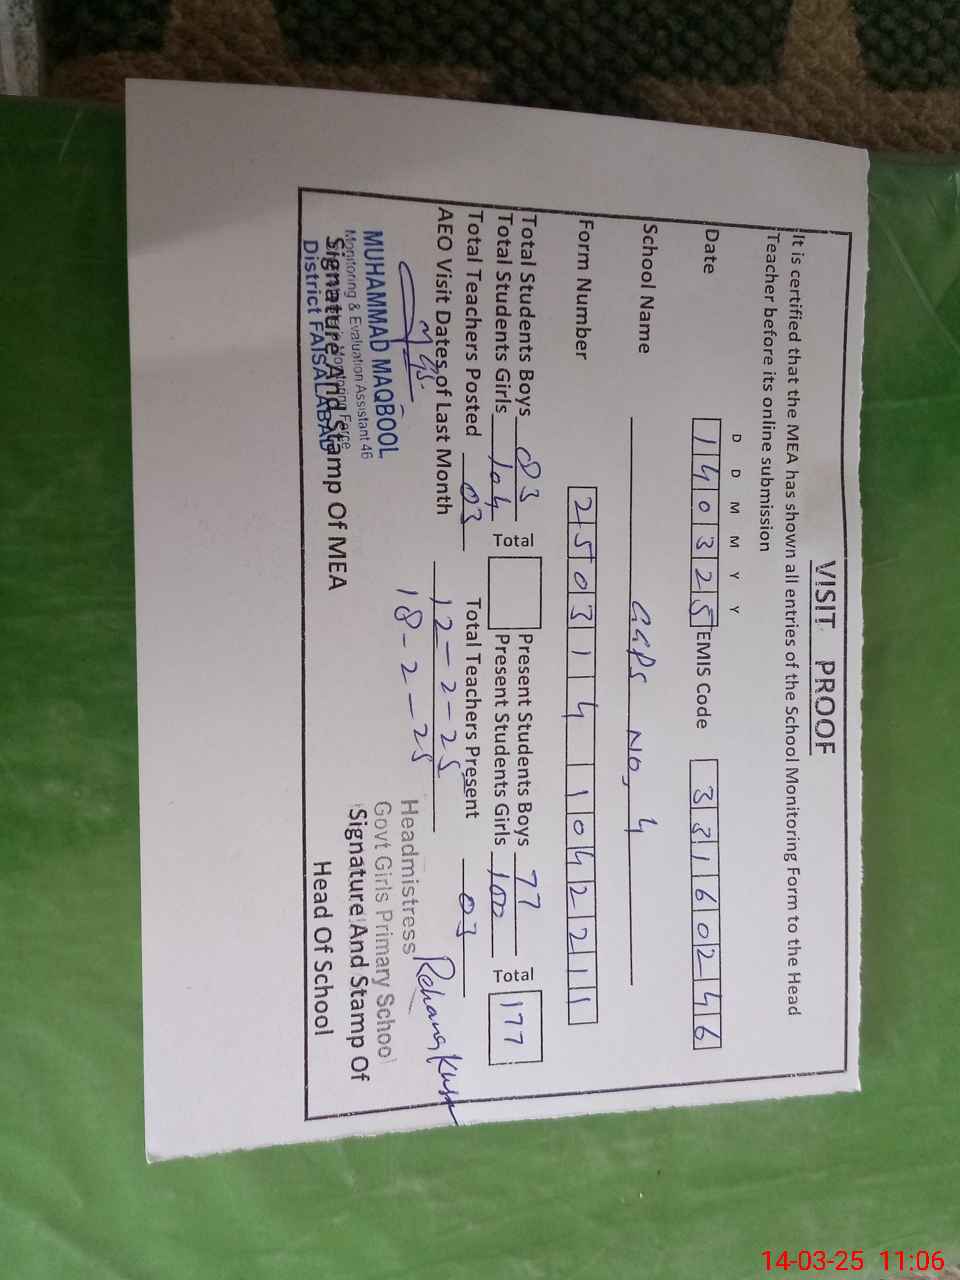 VISIT PROOF
It is certified that the MEA has shown all entries of the School Monitoring Form to the Head
Teacher before its online submission
D D M M Y Y
Date 140325 EMIS Code 33160246
School Name GGPS No, 4
Form Number 250314 1042211
Total Students Boys 83 Total Present Students Boys 77 Total 177
Total Students Girls 104 Present Students Girls 100
Total Teachers Posted 03 Total Teachers Present 03
AEO Visit Dates of Last Month 12-2-25
18-2-25
MUHAMMAD MAQBOOL
Monitoring & Evaluation Assistant 46
Monitoring Force
District FAISALABAD
Signature And Stamp Of MEA
Headmistress
Govt Girls Primary School
Signature And Stamp Of
Head Of School
14-03-25 11:06